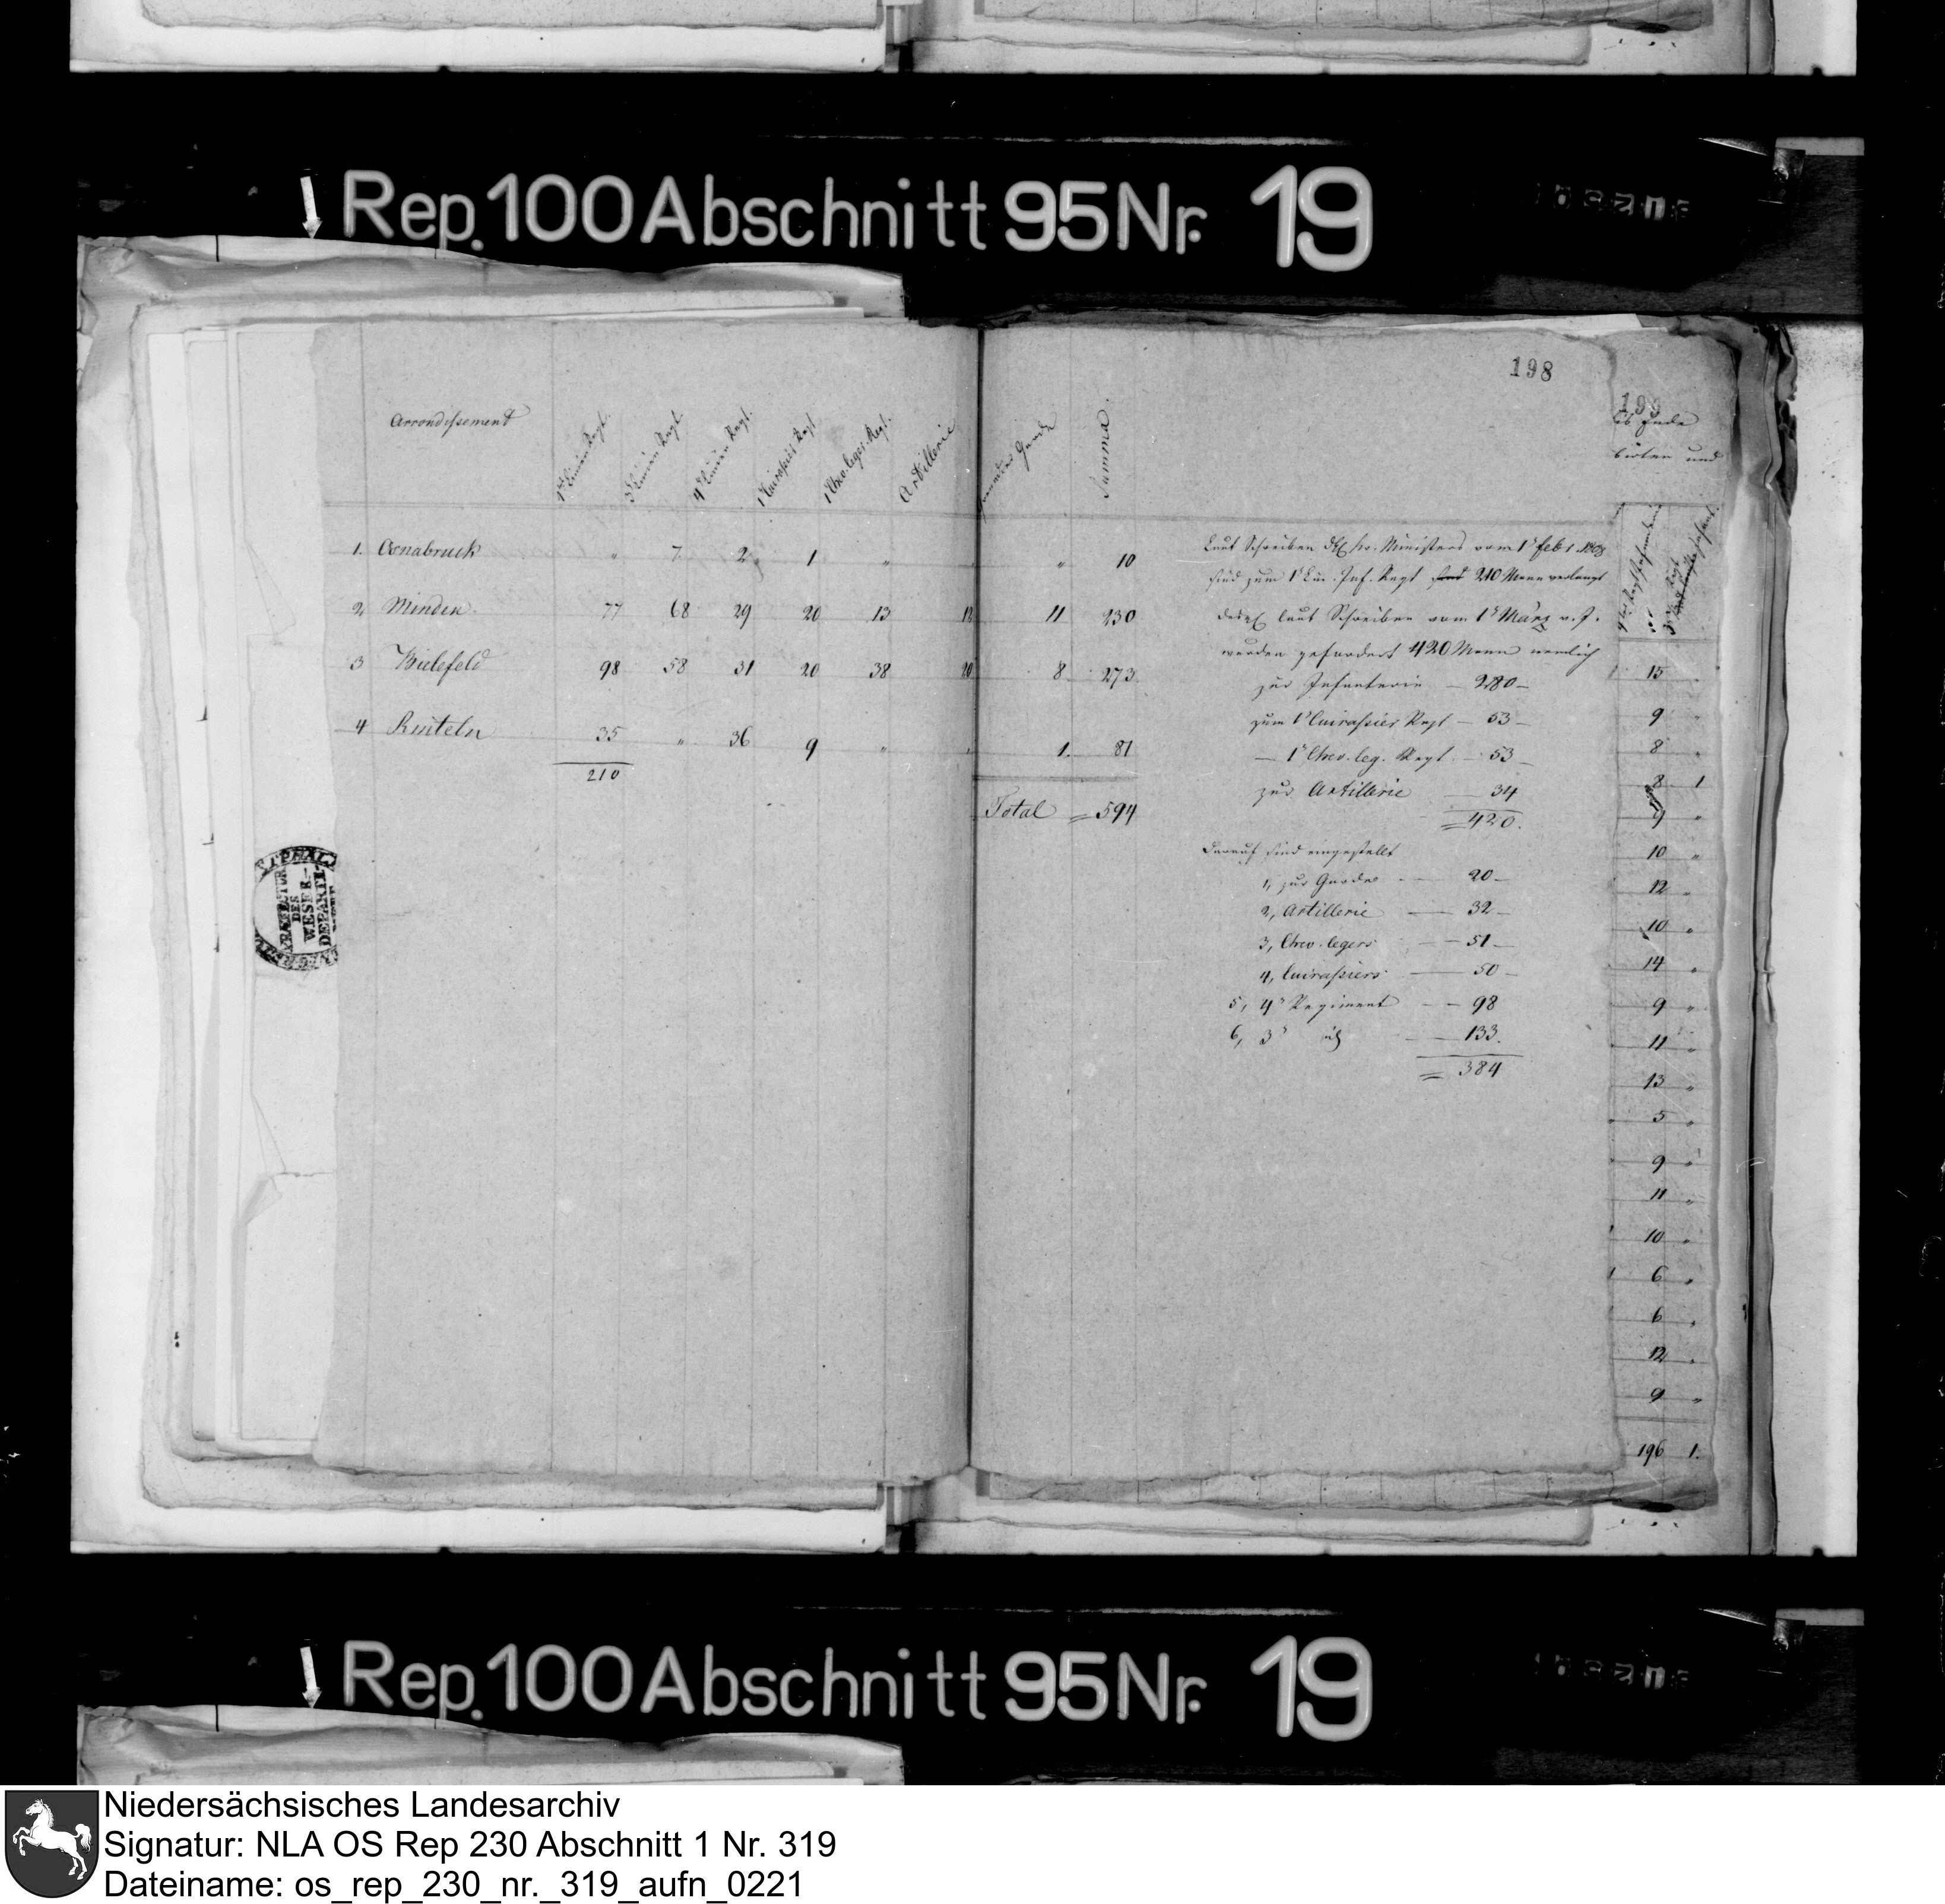 Rep. 100 Abschnitt 95 Nr. 19
198
Arrondissement
1r Linien Regt.
3r Linien Regt.
4r Linien Regt.
1 Cuirassier Regt
1 Chev. legers Regt.
Artillerie
Garde
Summa.
1. Osnabruck " 7 2 1 " " " 10
2, Minden 77 68 29 20 13 12 11 230
3 Bielefeld 98 58 31 20 38 20 8 273
4 Rinteln 35 " 36 9 " " 1. 81
210
Total = 594
Laut Schreiben des H. Ministers vom 1r Febr. 1808
sind zum 1r Lin. Inf. Regt sind 210 Mann verlangt
laut Schreiben vom 1r März v. J.
werden gefordert 420 Mann nemlich
zur Infanterie — 280 —
zum 1r Cuirassier Regt — 53 —
— 1r Chev. leg. Regt — 53 —
zur Artillerie — 34
= 420.
Darauf sind eingestellt
1, zur Garde — 20 —
2, Artillerie — 32 —
3, Chev. legers — 51 —
4, Cuirassiers — 50 —
5, 4r Regiment — 98
6, 3r — 133.
= 384
PRAEFECTUR
DES
WESER-
DEPARTE-
Ende
und
15
9
8
8 1
9
10
12
10
14
9
11
13
5
9
11
10
6
6
12
9
196 1.
Rep. 100 Abschnitt 95 Nr. 19
Niedersächsisches Landesarchiv
Signatur: NLA OS Rep 230 Abschnitt 1 Nr. 319
Dateiname: os_rep_230_nr._319_aufn_0221